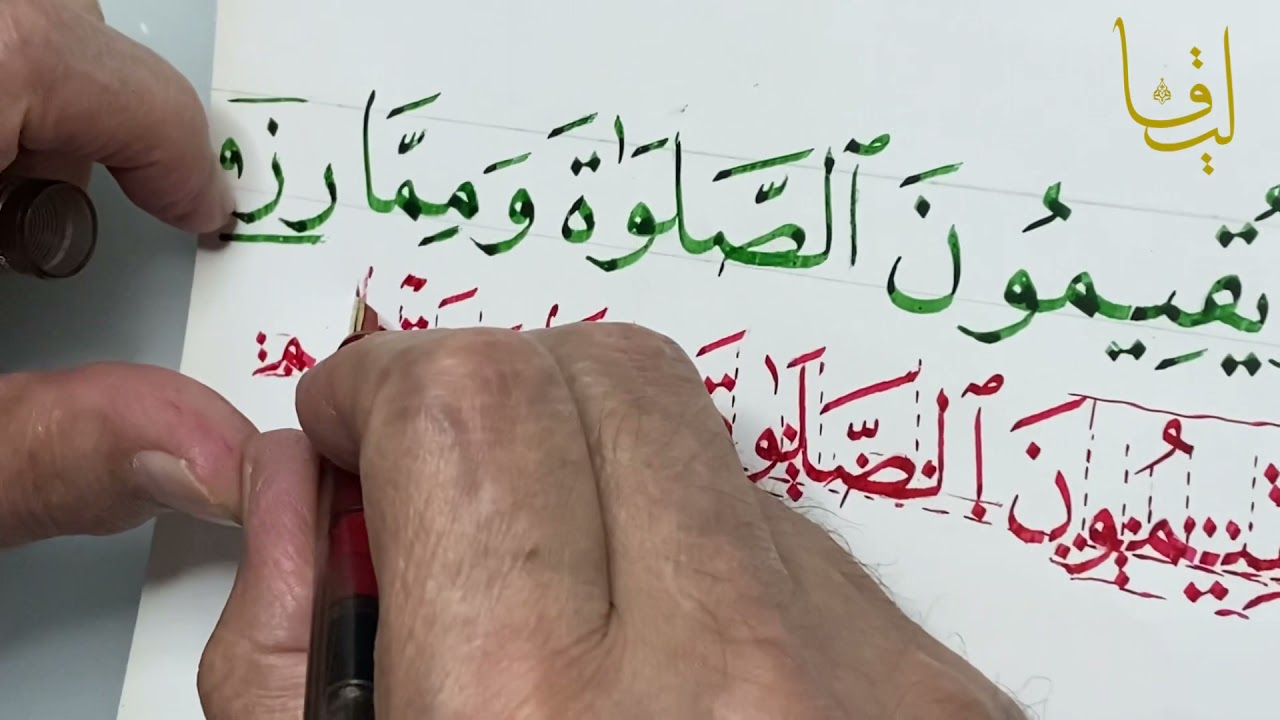 ليقا
يُقِيمُونَ ٱلصَّلَوٰةَ وَمِمَّا
يقيمُونَ ٱلصَّلَوٰةَ